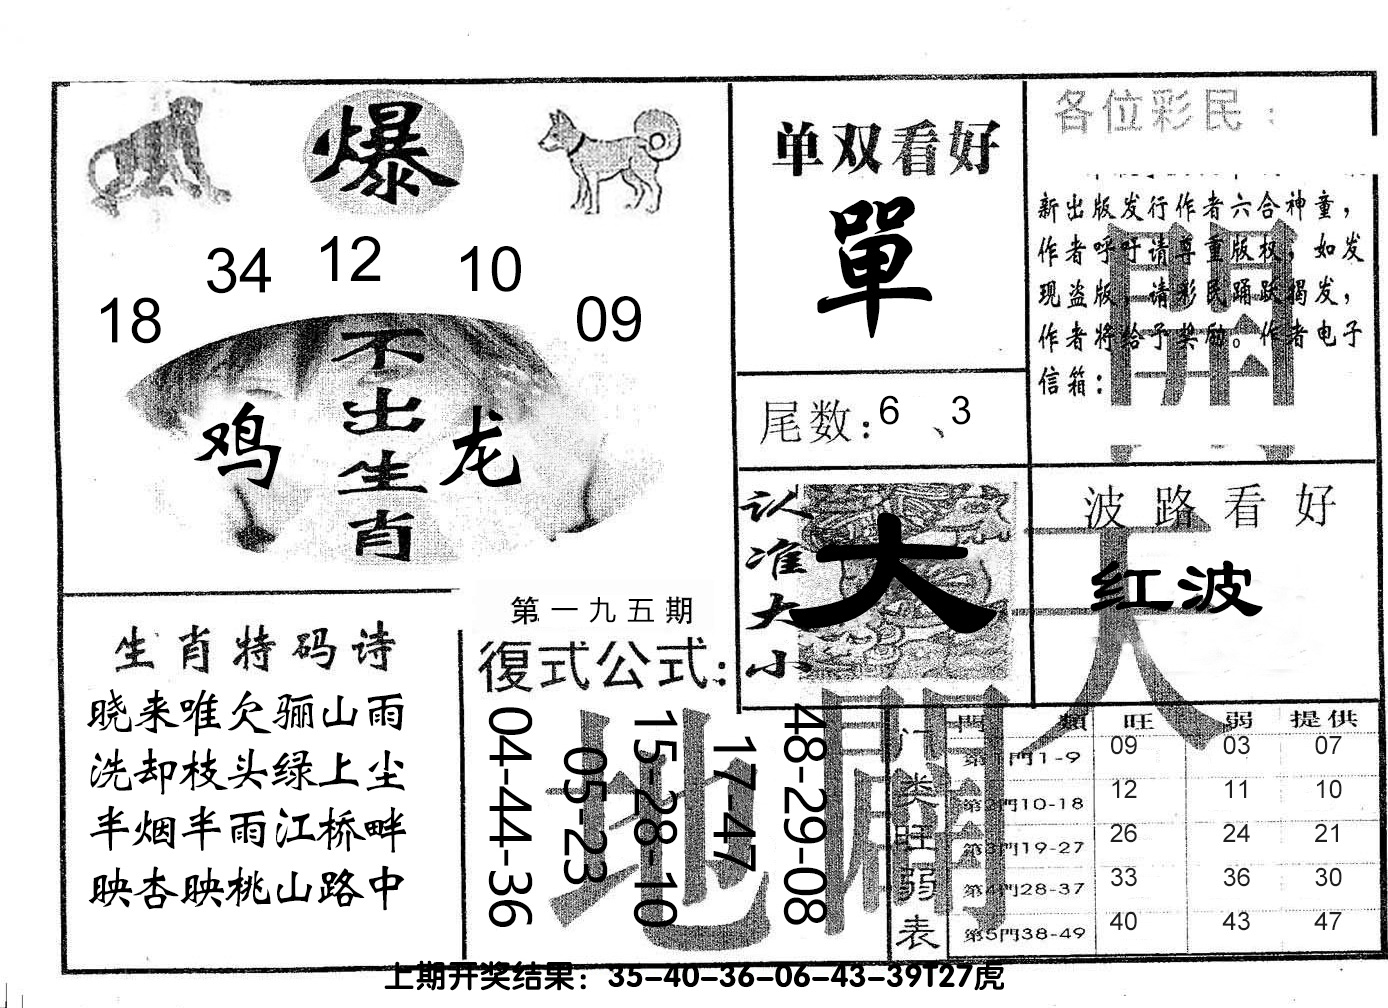 爆
18 34 12 10 09
不出生肖
鸡 龙
单双看好
單
尾数:6、3
各位彩民:
新出版发行作者六合神童,
作者呼吁请尊重版权,如发
现盗版,请彩民踊跃揭发,
作者将给予奖励。作者电子
信箱:
開
认准大小
大
波路看好
红波
天
生肖特码诗
晓来唯欠骊山雨
洗却枝头绿上尘
半烟半雨江桥畔
映杏映桃山路中
第一九五期
復式公式:
04-44-36
05-23
15-28-10
17-47
48-29-08
地
門类旺弱表
門類 旺 弱 提供
第1門1-9 09 03 07
第2門10-18 12 11 10
第3門19-27 26 24 21
第4門28-37 33 36 30
第5門38-49 40 43 47
上期开奖结果：35-40-36-06-43-39T27虎